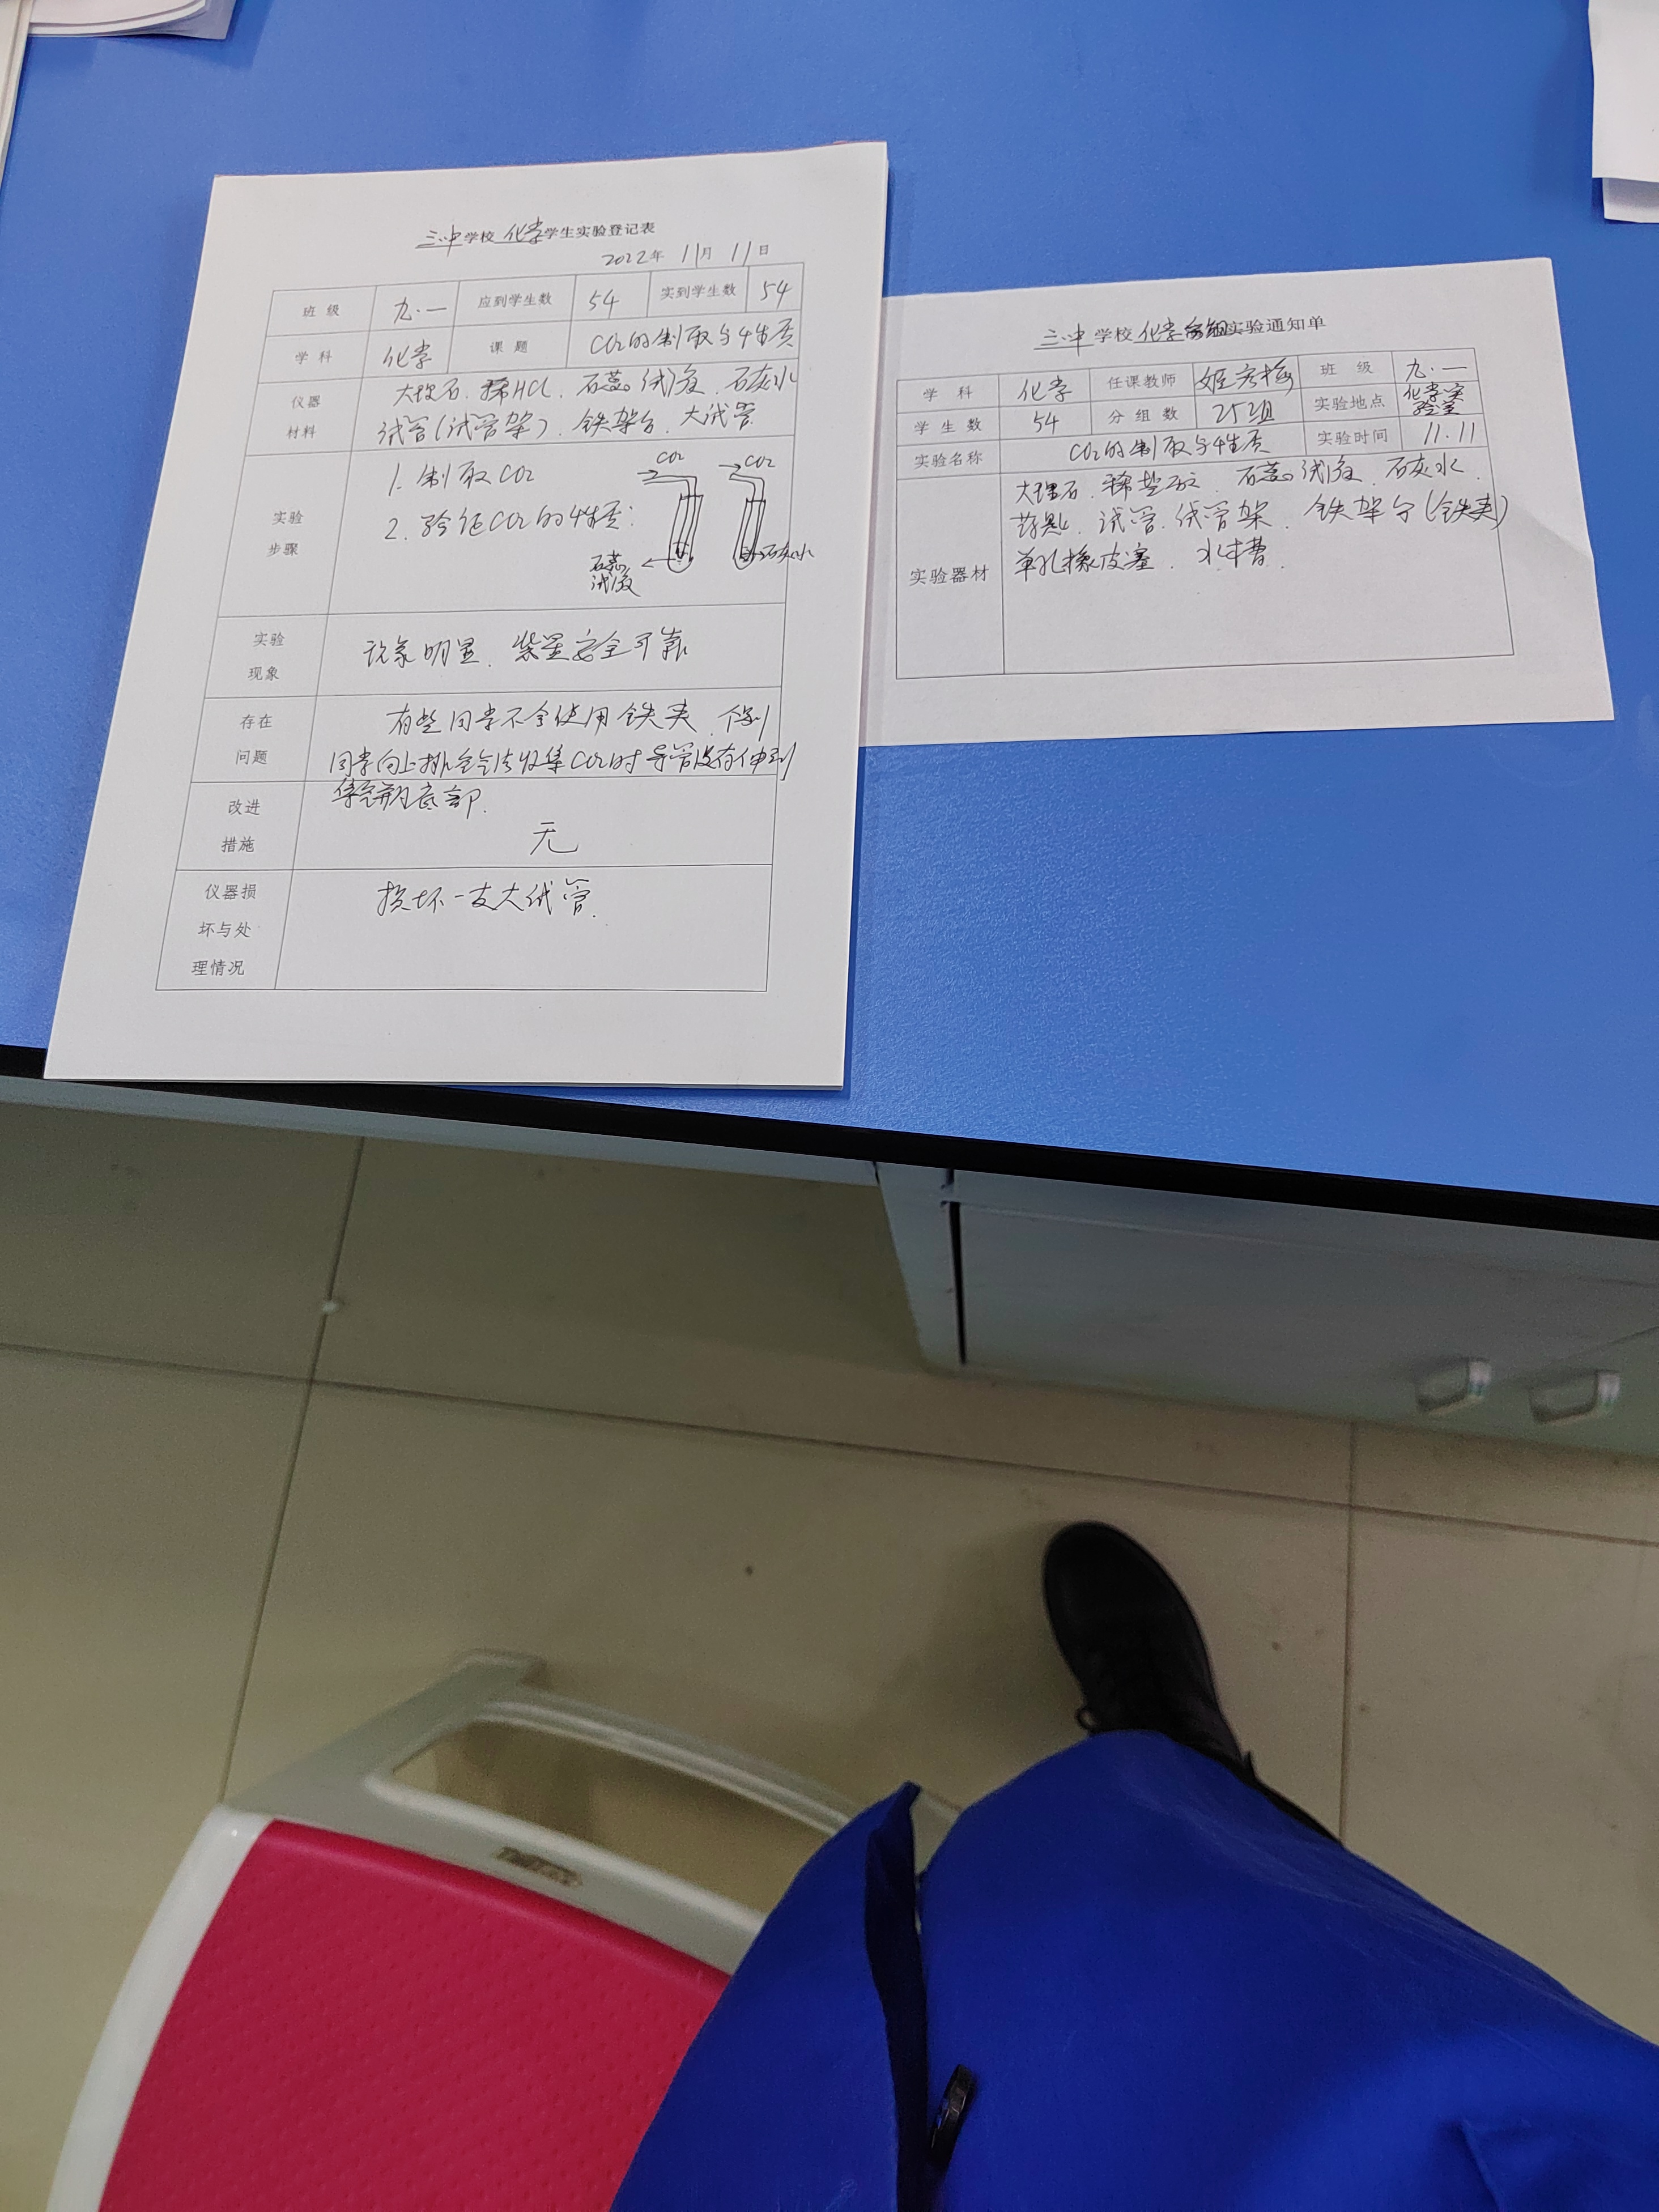 三中学校化学学生实验登记表
2022年 11月 11日
班级 九.一 应到学生数 54 实到学生数 54
学科 化学 课题 CO2的制取与性质
仪器 大理石、稀HCl、石蕊试液、石灰水
材料 试管(试管架)、铁架台、大试管
实验
步骤
1. 制取CO2
2. 验证CO2的性质:
CO2 CO2
石蕊
试液
石灰水
实验
现象
现象明显、 安全可靠
存在 有些同学不会使用铁夹、个别
问题 同学向上排空气法收集CO2时导管没有伸到
集气瓶底部.
改进
措施 无
仪器损 损坏一支大试管.
坏与处
理情况
三中学校化学分组实验通知单
学科 化学 任课教师 班级 九.一
学生数 54 分组数 25组 实验地点 化学实
验室
实验名称 CO2的制取与性质 实验时间 11.11
实验器材
大理石、稀盐酸、石蕊试液、石灰水、
药匙、试管、试管架、铁架台(铁夹)
单孔橡皮塞、水槽.